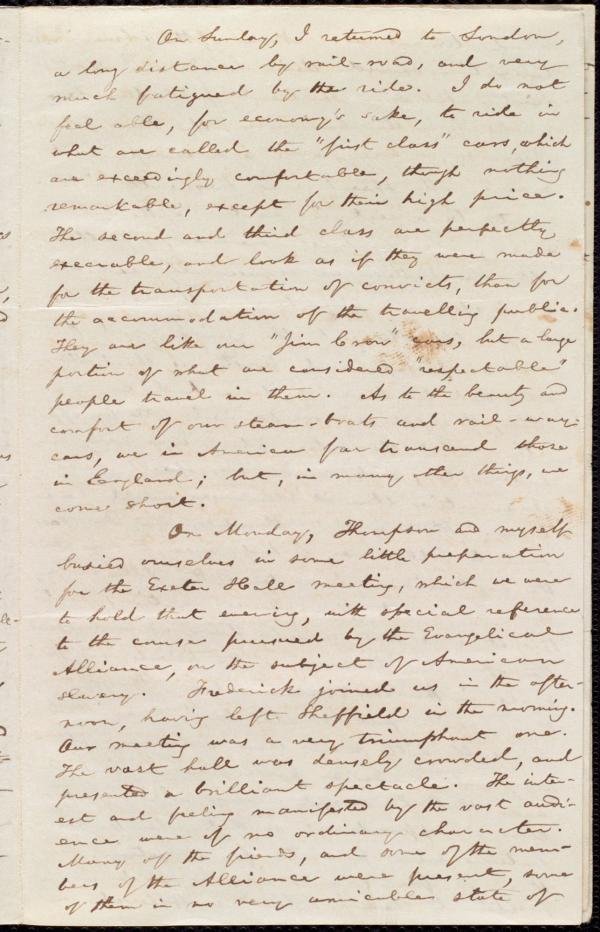 On Sunday, I returned to London,
a long distance by rail-road, and very
much fatigued by the ride. I do not
feel able, for economy's sake, to ride in
what are called the "first class" cars, which
are exceedingly comfortable, though nothing
remarkable, except for their high price.
The second and third class are perfectly
execrable, and look as if they were made
for the transportation of convicts, than for
the accommodation of the travelling public.
They are like our "Jim Crow" cars, but a large
portion of what are considered "respectable"
people travel in them. As to the beauty and
comfort of our steam-boats and rail-way-
cars, we in America far transcend those
in England; but, in many other things, we
come short.
On Monday, Thompson and myself
busied ourselves in some little preparation
for the Exeter Hall meeting, which we were
to hold that evening, with special reference
to the course pursued by the Evangelical
Alliance, on the subject of American
slavery. Frederick joined us in the after-
noon, having left Sheffield in the morning.
Our meeting was a very triumphant one.
The vast hall was densely crowded, and
presented a brilliant spectacle. The inte-
est and feeling manifested by the vast audi-
ence were of no ordinary character.
Many of the friends, and some of the mem-
bers of the Alliance were present, some
of them in no very amicable state of